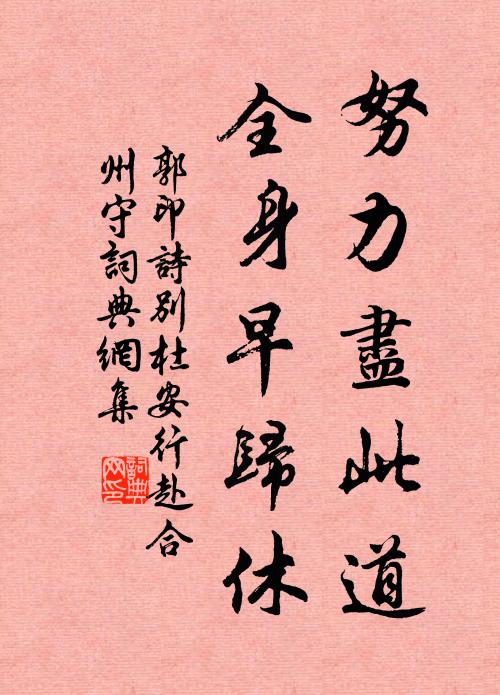 努力盡此道
全身早歸休
郭印詩別杜安行赴合
州守詞典網集
詞典
网印